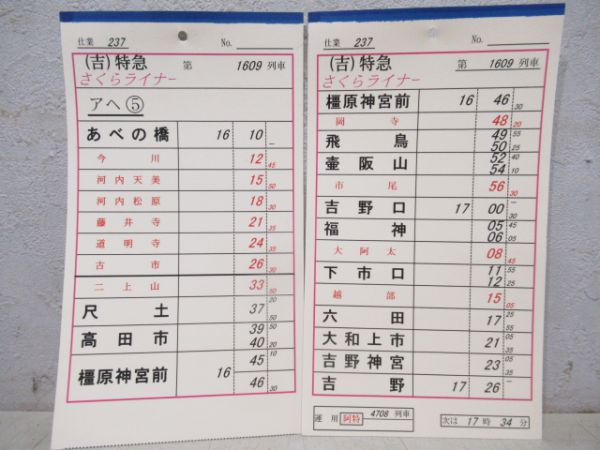 仕業 237 No.
(吉)特急 第 1609 列車
さくらライナー
アヘ⑤
あべの橋 16 10 —
今川 12 45
河内天美 15 50
河内松原 18 30
藤井寺 21 35
道明寺 24 35
古市 26 30
二上山 33 50
尺土 37 20 50
高田市 39 50 40 20
橿原神宮前 16 45 10 46 30
仕業 237 No.
(吉)特急 第 1609 列車
さくらライナー
橿原神宮前 16 46 30
岡寺 48 20
飛鳥 49 55 50 25
壺阪山 52 40 54 10
市尾 56 30
吉野口 17 00 — 30
福神 05 45 06 05
大阿太 08 45
下市口 11 55 12 25
越部 15 05
六田 17 25 55
大和上市 21 05 35
吉野神宮 23 05 35
吉野 17 26 —
運用 阿特 4708 列車 次は 17 時 34 分